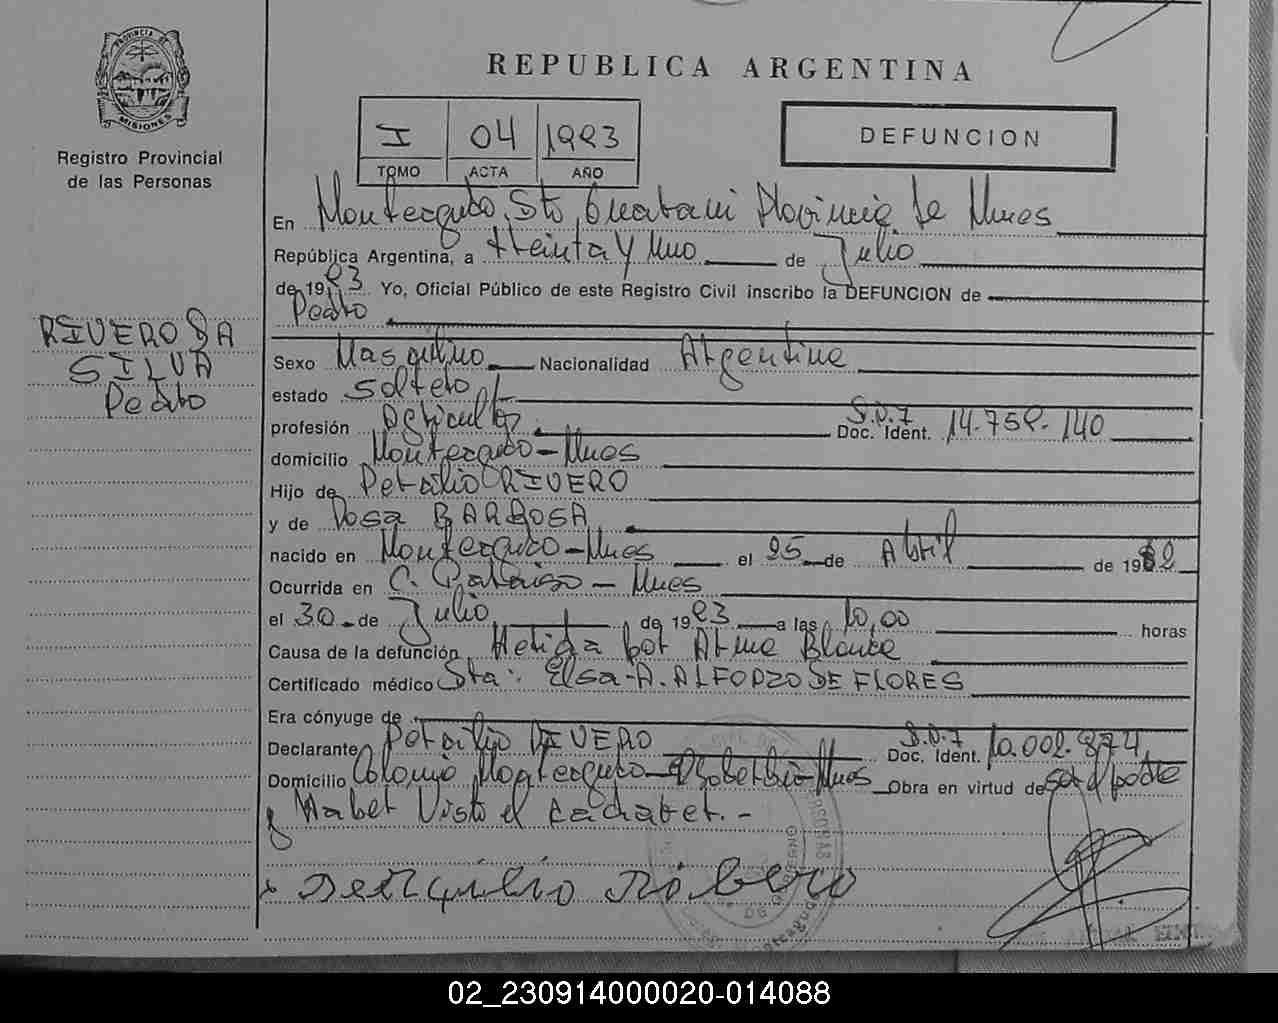 REPUBLICA ARGENTINA
PROVINCIA DE MISIONES
Registro Provincial
de las Personas
I 04 1983
TOMO ACTA AÑO
DEFUNCION
En Monteagudo, Sto, Guarani Provincia de Mnes
República Argentina, a treinta y uno de Julio
de 1983 Yo, Oficial Público de este Registro Civil inscribo la DEFUNCION de
Pedro
RIVERO DA
SILVA
Pedro
Sexo Masculino Nacionalidad Argentina
estado soltero
profesión Agricultor S.N.I Doc. Ident. 14.758.140
domicilio Monteagudo - Mnes
Hijo de Petrilio RIVERO
y de Rosa BARBOSA
nacido en Monteagudo - Mnes el 25 de Abril de 19
Ocurrida en C. Paraiso - Mnes
el 30 de Julio de 1983 a las 10,00 horas
Causa de la defunción Herida por Arma Blanca
Certificado médico Sta: Elsa A. ALFONZO DE FLORES
Era cónyuge de
Declarante Petrilio RIVERO Doc. Ident. 10.002.874
Domicilio Colonia Monteagudo - Mnes Obra en virtud de
y Haber Visto el cadaver.-
02_230914000020-014088